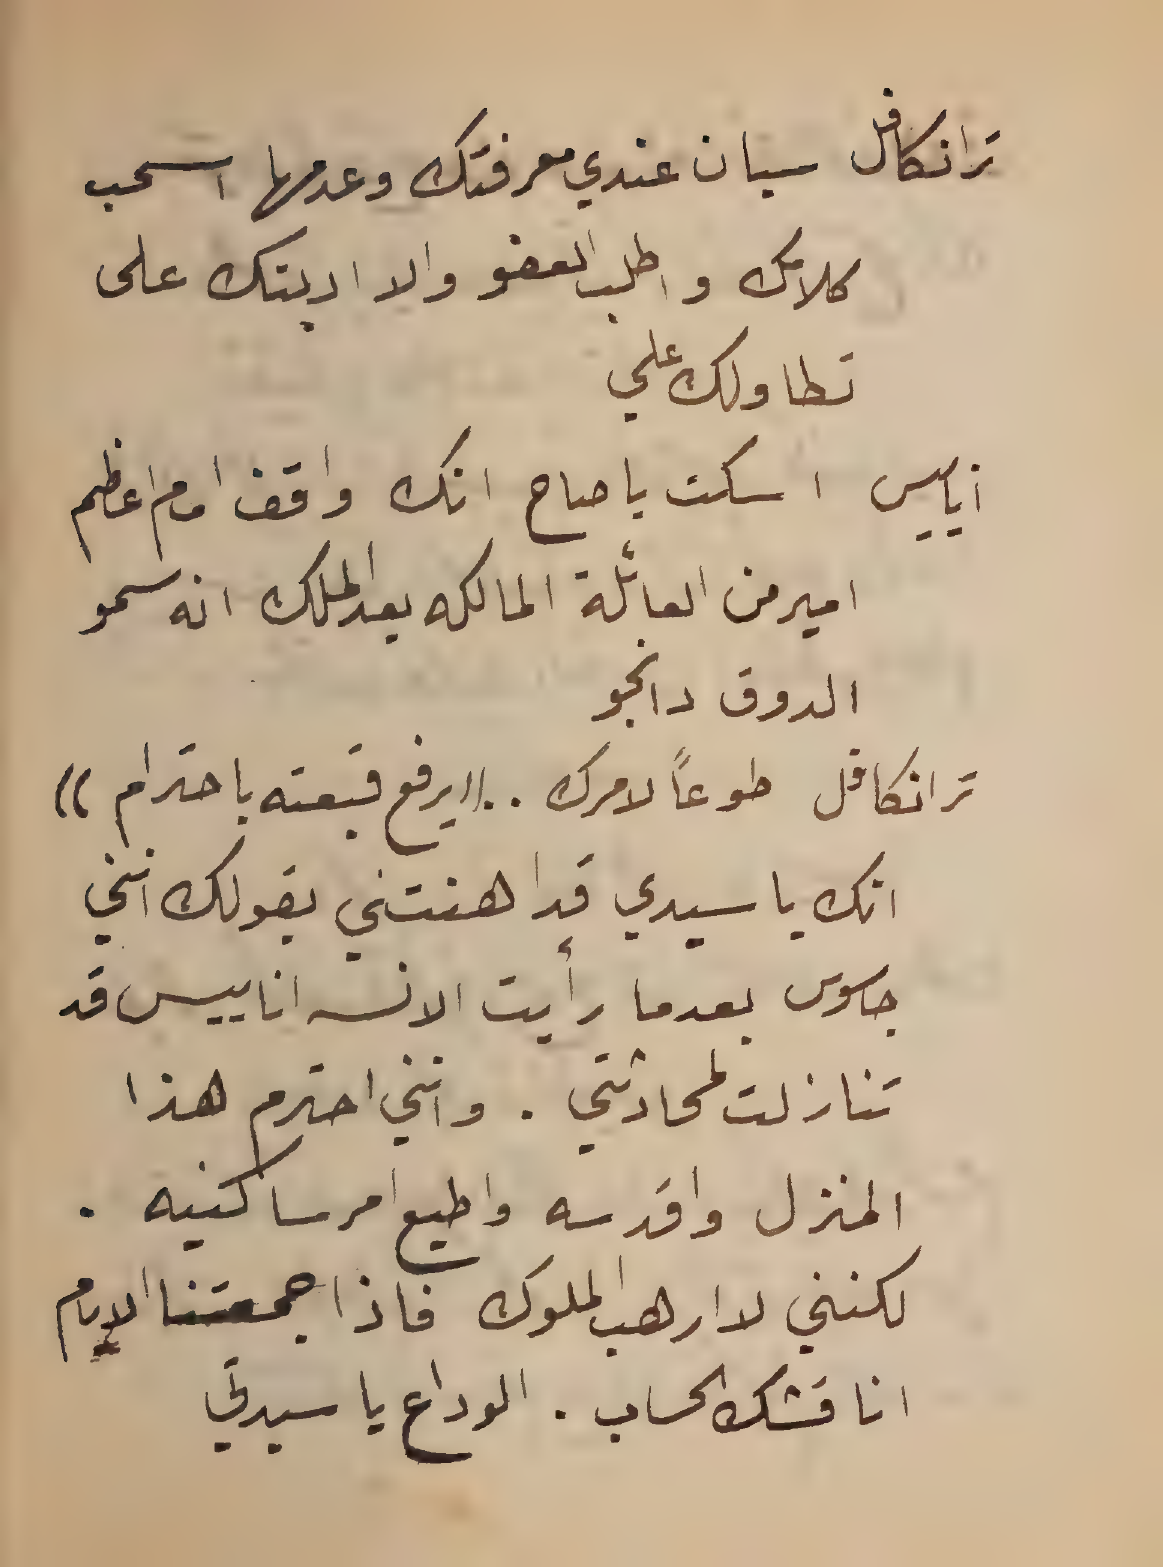 ترانكافل سيان عندي معرفتك وعدمها اسحب
كلامك واطلب العفو والا ادبتك على
تطاولك علي
أناييس اسكت يا صاح انك واقف امام اعظم
امير من العائلة المالكه بعد الملك انه سمو
الدوق دانجو
ترانكافل طوعاً لامرك .. ((يرفع قبعته باحترام))
انك يا سيدي قد اهنتني بقولك انني
جاسوس بعدما رأيت الانسه اناييس قد
تنازلت لمحادثتي . وانني احترم هذا
المنزل واقدسه واطيع امر ساكنيه .
لكنني لا ارهب الملوك فاذا جمعتنا الايام
اناقشك الحساب . الوداع يا سيدتي